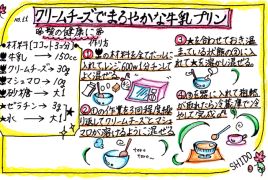 no.11
クリームチーズでまろやかな牛乳プリン
骨の健康に
★材料(ココット3コ分)★
牛乳 → 150cc
クリームチーズ → 30g
マシュマロ → 10g
砂糖 → 大1
★ゼラチン → 3g
★水 → 大1
作り方
①の材料を全てボールに
入れてレンジ600w1分チンして
よく混ぜる。
②①の作業を3回程度繰
り返してクリームチーズとマシュ
マロが溶けるように混ぜる。
③★を合わせておき温
まっている状態の②に入
れて★も溶かし混ぜる。
④③を器に入れて粗熱
が取れたら冷蔵庫で冷
やして完成
SHIDO